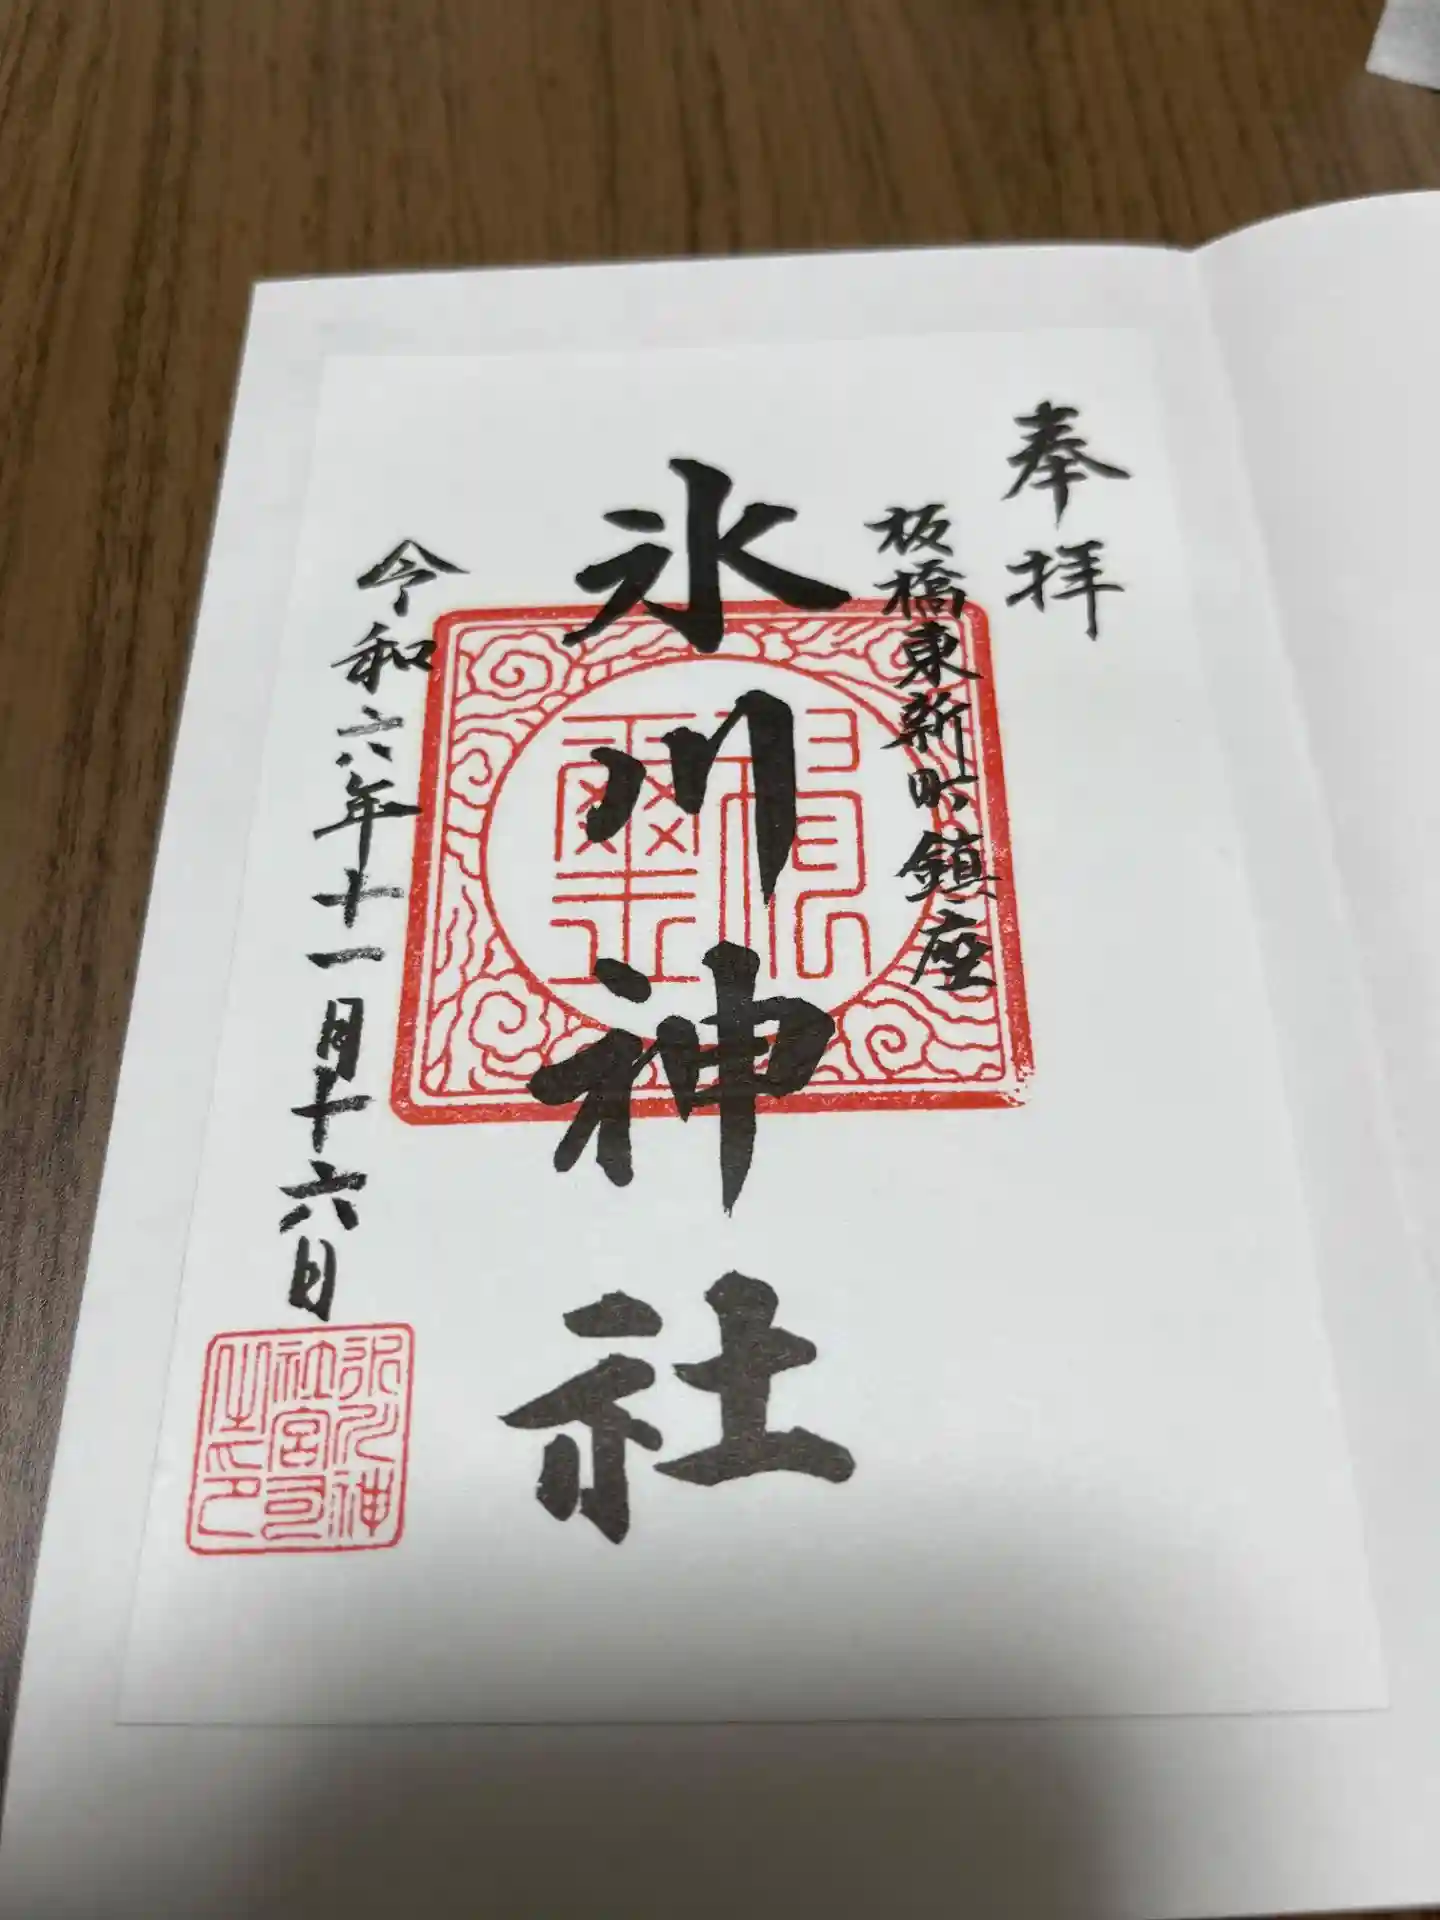 奉拝
板橋東新町鎮座
氷川神社
令和六年十一月十六日
氷川神
社宮司
之印